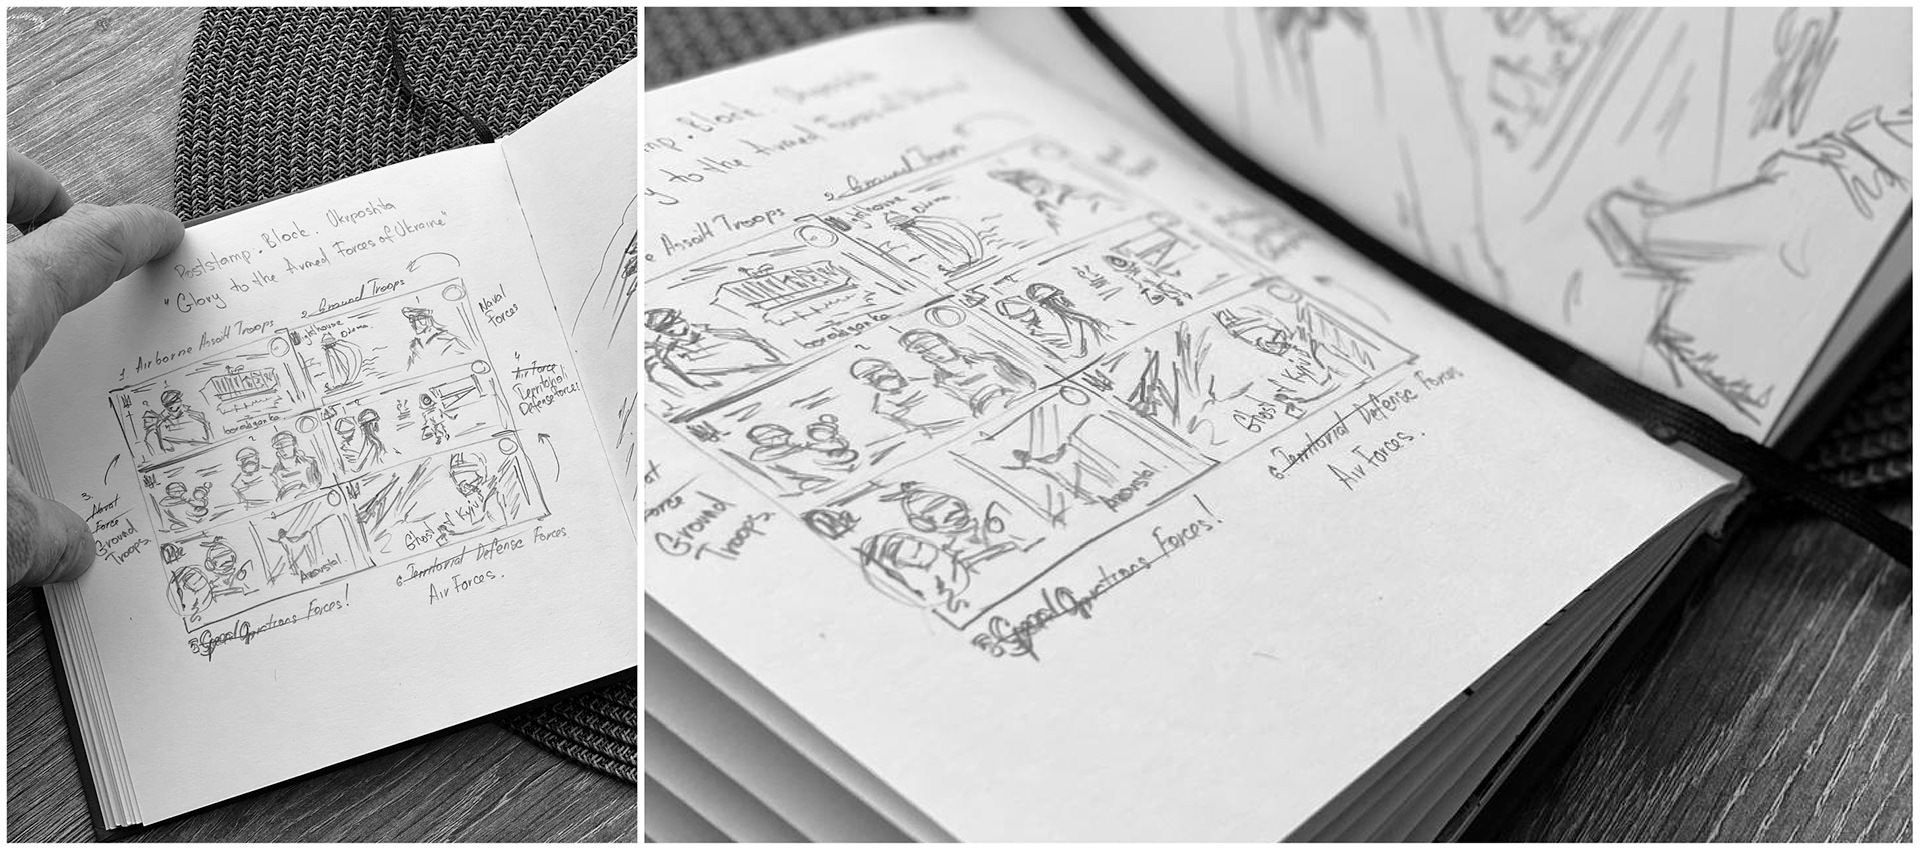 Poststamp. Block. Ukrposhta
"Glory to the Armed Forces of Ukraine"
1 Airborne Assalt Troops
2. Ground Troops
Naval
Forces
lighthouse
Divna.
borodyanka
4
Air Force
Territorial
Defense Forces!
3.
Naval
Force
Ground
Troops.
Azovstal.
Ghost of Kyiv
5 Special Operations Forces!
6. Territorial Defense Forces
Air Forces.
mp. Block. Ukrposhta
y to the Armed Forces of Ukraine
2. Ground Troops
e Assalt Troops
lighthouse
borodyanka
Force
Ground
Troops.
Azovstal.
Ghost of Kyiv
5 Special Operations Forces!
6. Territorial Defense Forces
Air Forces.